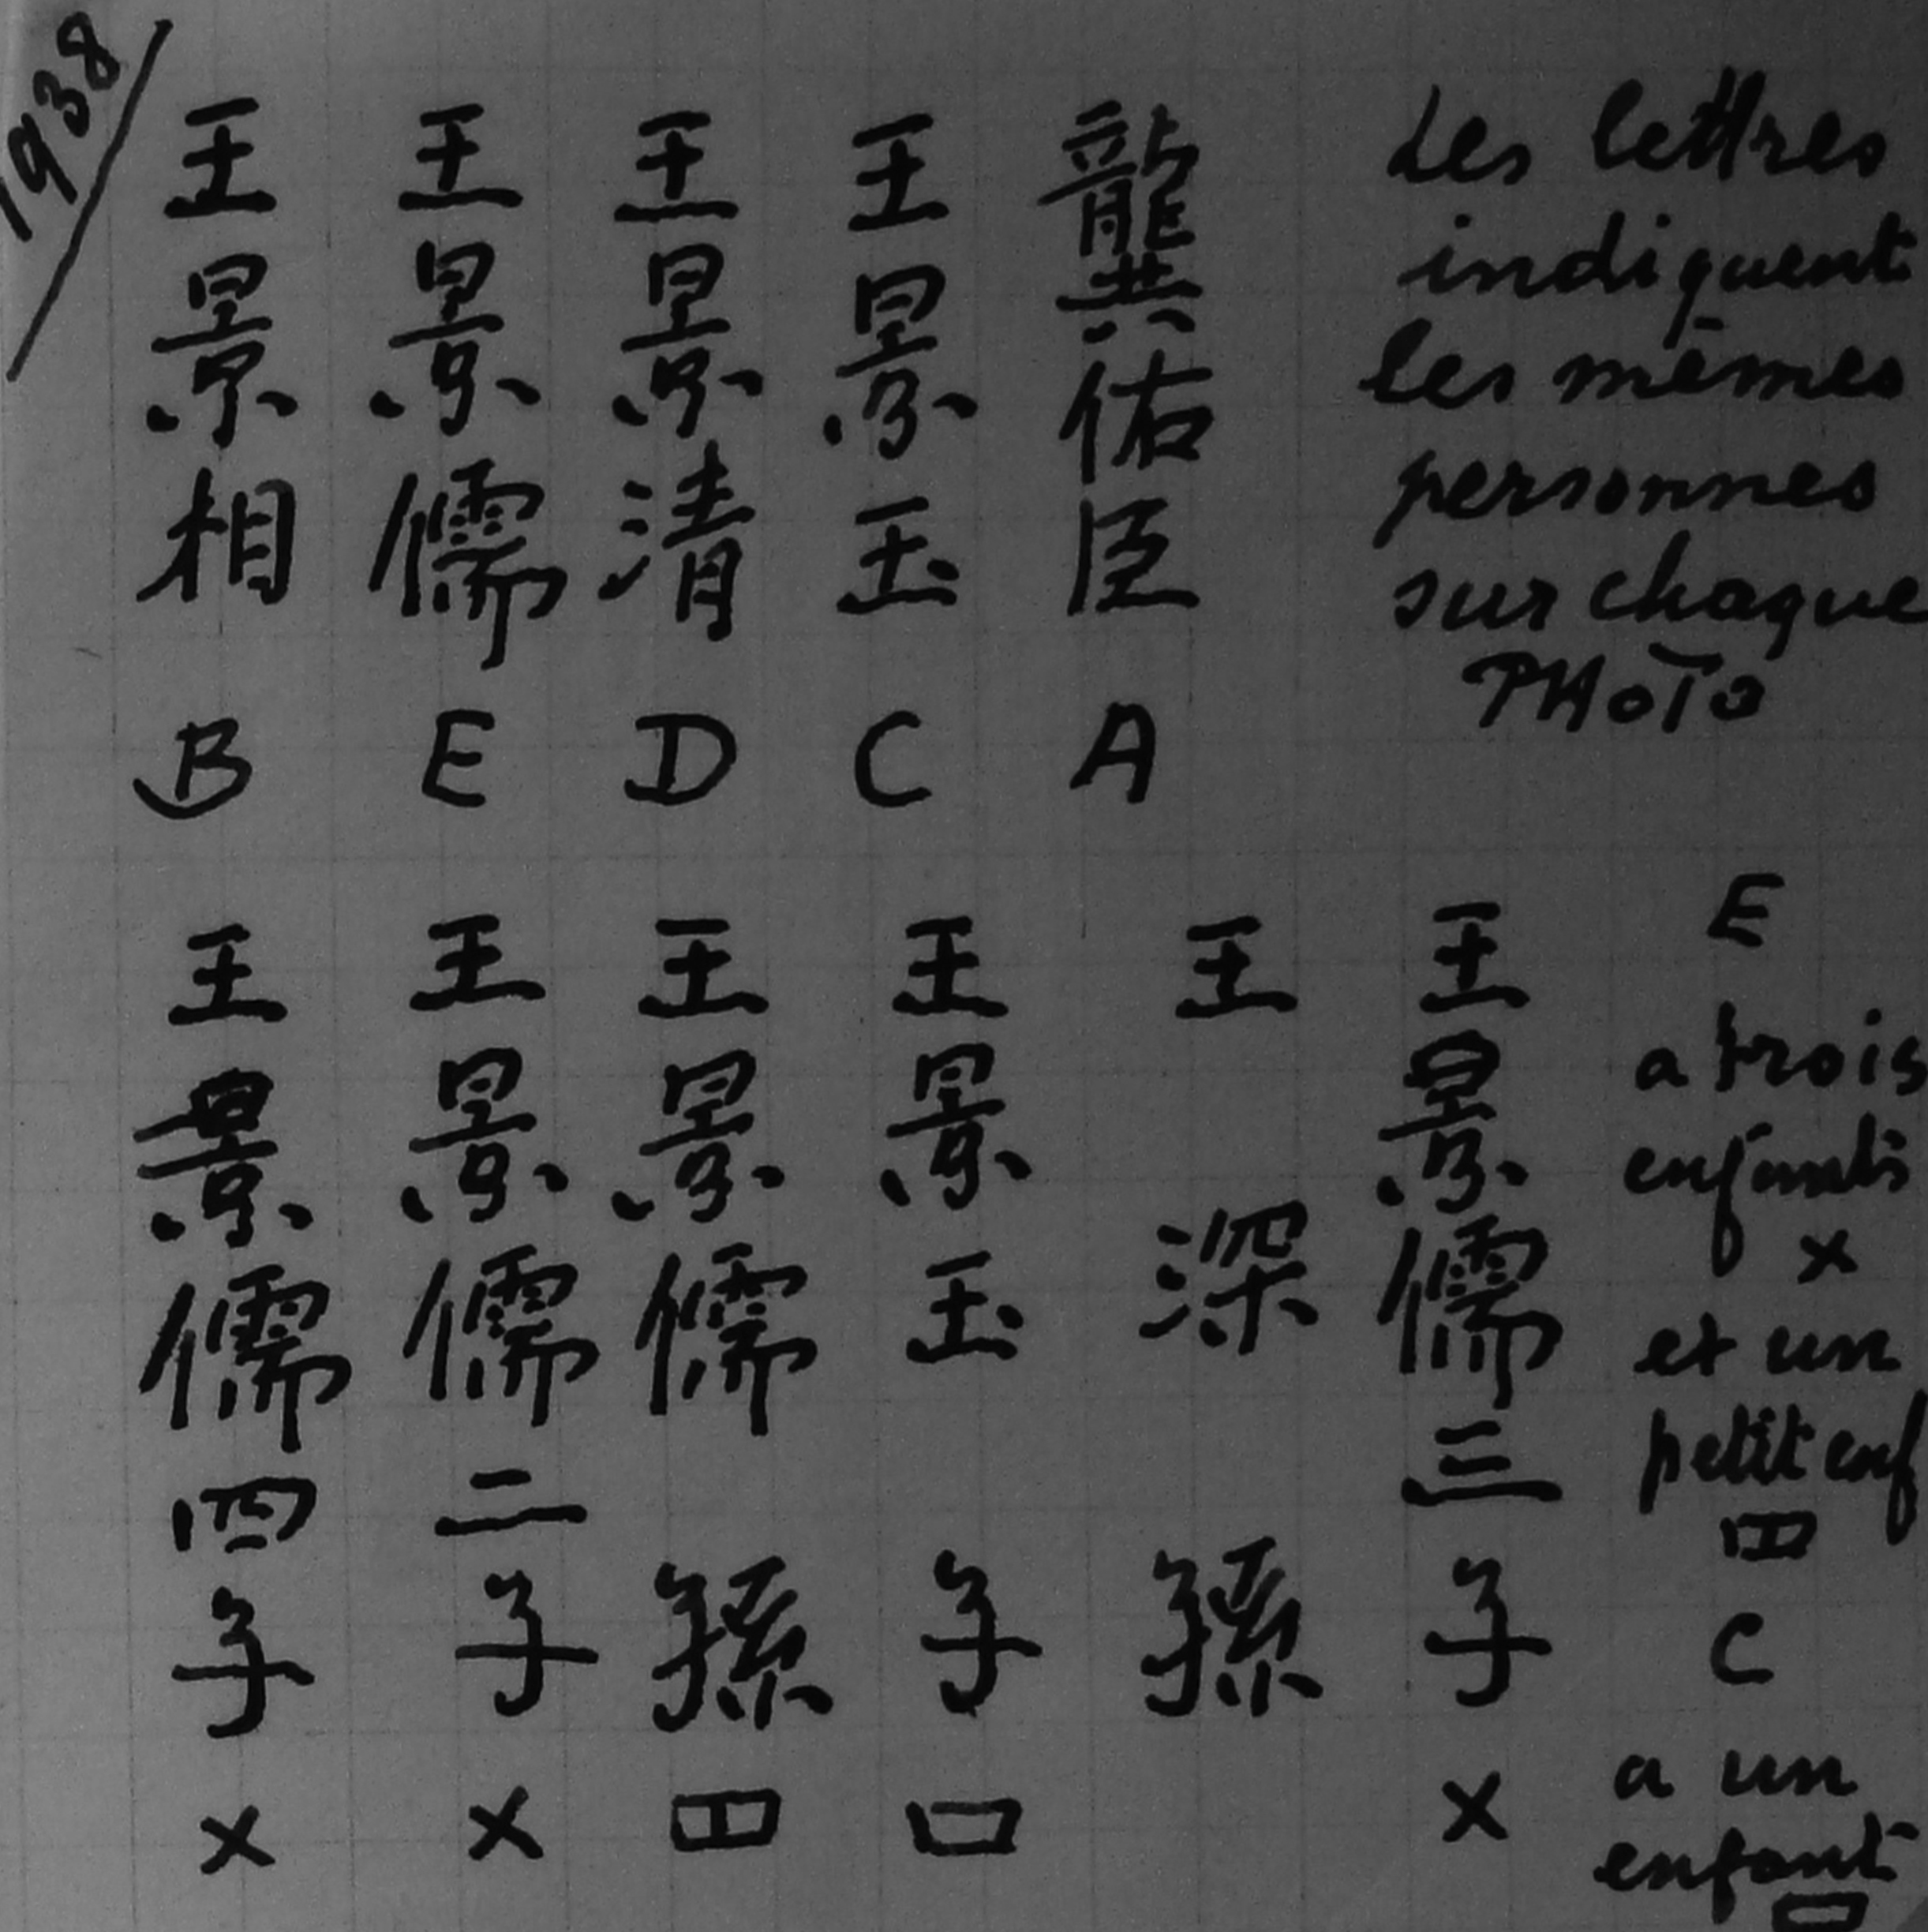 1938
Les lettres
indiquent
les mêmes
personnes
sur chaque
PHOTO
龔佑臣 A
王景玉 C
王景清 D
王景儒 E
王景相 B
E
a trois
enfants
×
et un
petit enf
◫
C
a un
enfant
□
王景儒三子 ×
王深孫
王景玉子 □
王景儒孫 ◫
王景儒二子 ×
王景儒四子 ×